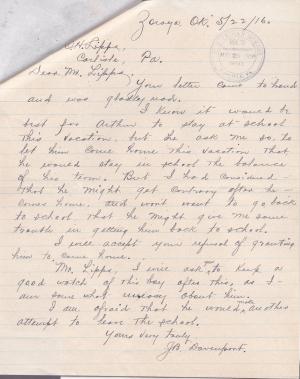 Zoraya Ok. 5/22/16.
O.H. Lipps,
Carlisle, Pa.
Dear Mr. Lipps:
Your letter came to hand
and was gladly read.
I know it would be
best for Arthur to stay at school
this vacation, but he ask me so, to
let him come home this vacation that
he would stay in school the balance
of his term. But I had considered
that he might get contrary after he
comes home, and won't want to go back
to school that he might give me some
trouble in getting him back to school.
I will accept your refusal of granting
him to come home.
Mr. Lipps, I will ask to keep a
good watch of this boy after this, as I
am some what uneasy about him.
I am afraid that he would make another
attempt to leave the school.
Yours very truly
J.B. Davenport.